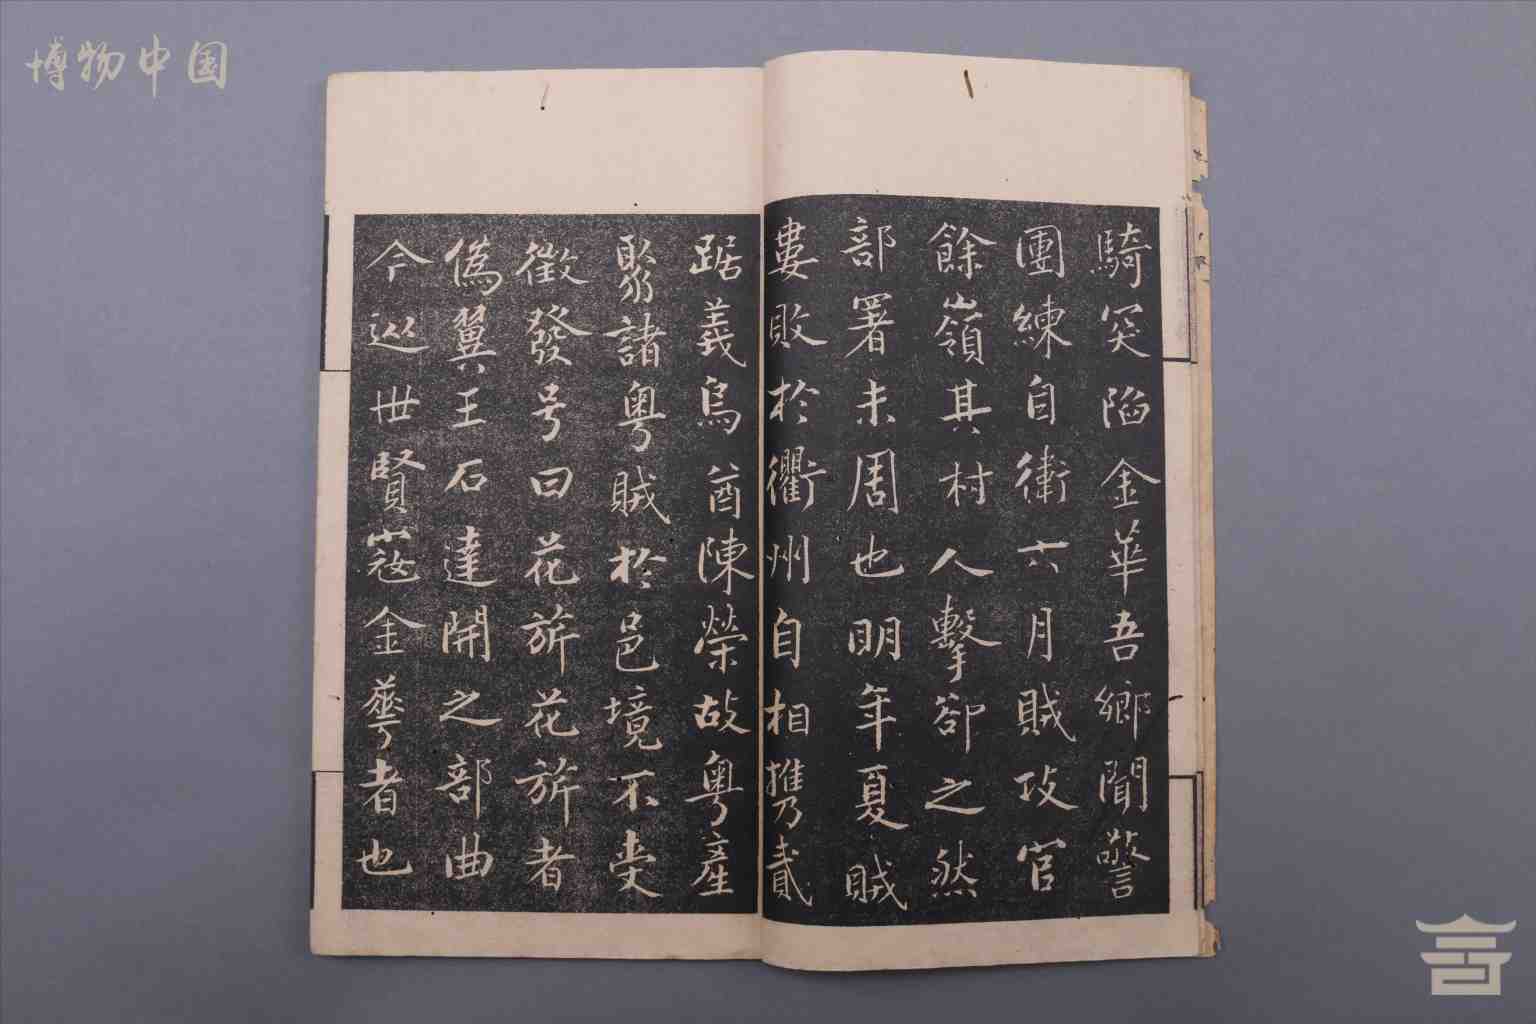 博物中国
騎突陷金華吾鄉聞警
團練自衛六月賊攻官
餘嶺其村人擊卻之然
部署未周也明年夏賊
婁敗於衢州自相攜貳
踞義烏酋陳榮故粵產
翦諸粵賊於邑境不受
徵發号曰花旂花旂者
偽翼王石達開之部曲
今巡世賢寇金華者也